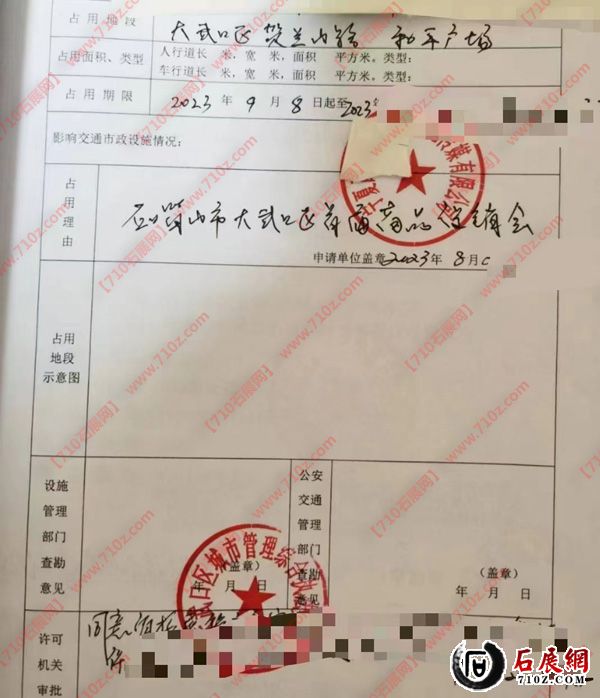 占用地段 大武口区贺兰山路 和平广场
占用面积、类型 人行道长 米,宽 米,面积 平方米。类型:
车行道长 米,宽 米,面积 平方米。类型:
占用期限 2023年9月8日起至2023年
影响交通市政设施情况:
煤有限公司
占用理由
石嘴山市大武口区首届商品展销会
申请单位盖章 2023年8月
占用
地段
示意图
设施
管理
部门
查勘
意见
(盖章)
年 月 日
公安
交通
管理
部门
查勘
意见
(盖章)
年 月 日
口区城市管理综合
许可
机关
审批
同意
【710石展网】
www.710z.com
石展网
710Z.COM